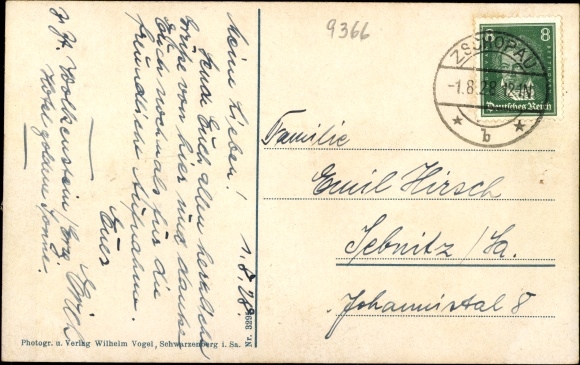 Meine Lieben!
1.8.28.
Sende Euch allen herzliche
Grüße von hier und danke
Euch nochmals für die
freundliche Aufnahme.
Euer
Wolkenstein/Erzg
Hotel goldene Sonne.
9366
8
ZSCHOPAU
-1.8.28.
Deutsches Reich
b
Familie
Emil Hirsch
Sebnitz/Sa.
Johannistal 8
Photogr. u. Verlag Wilhelm Vogel, Schwarzenberg i. Sa.